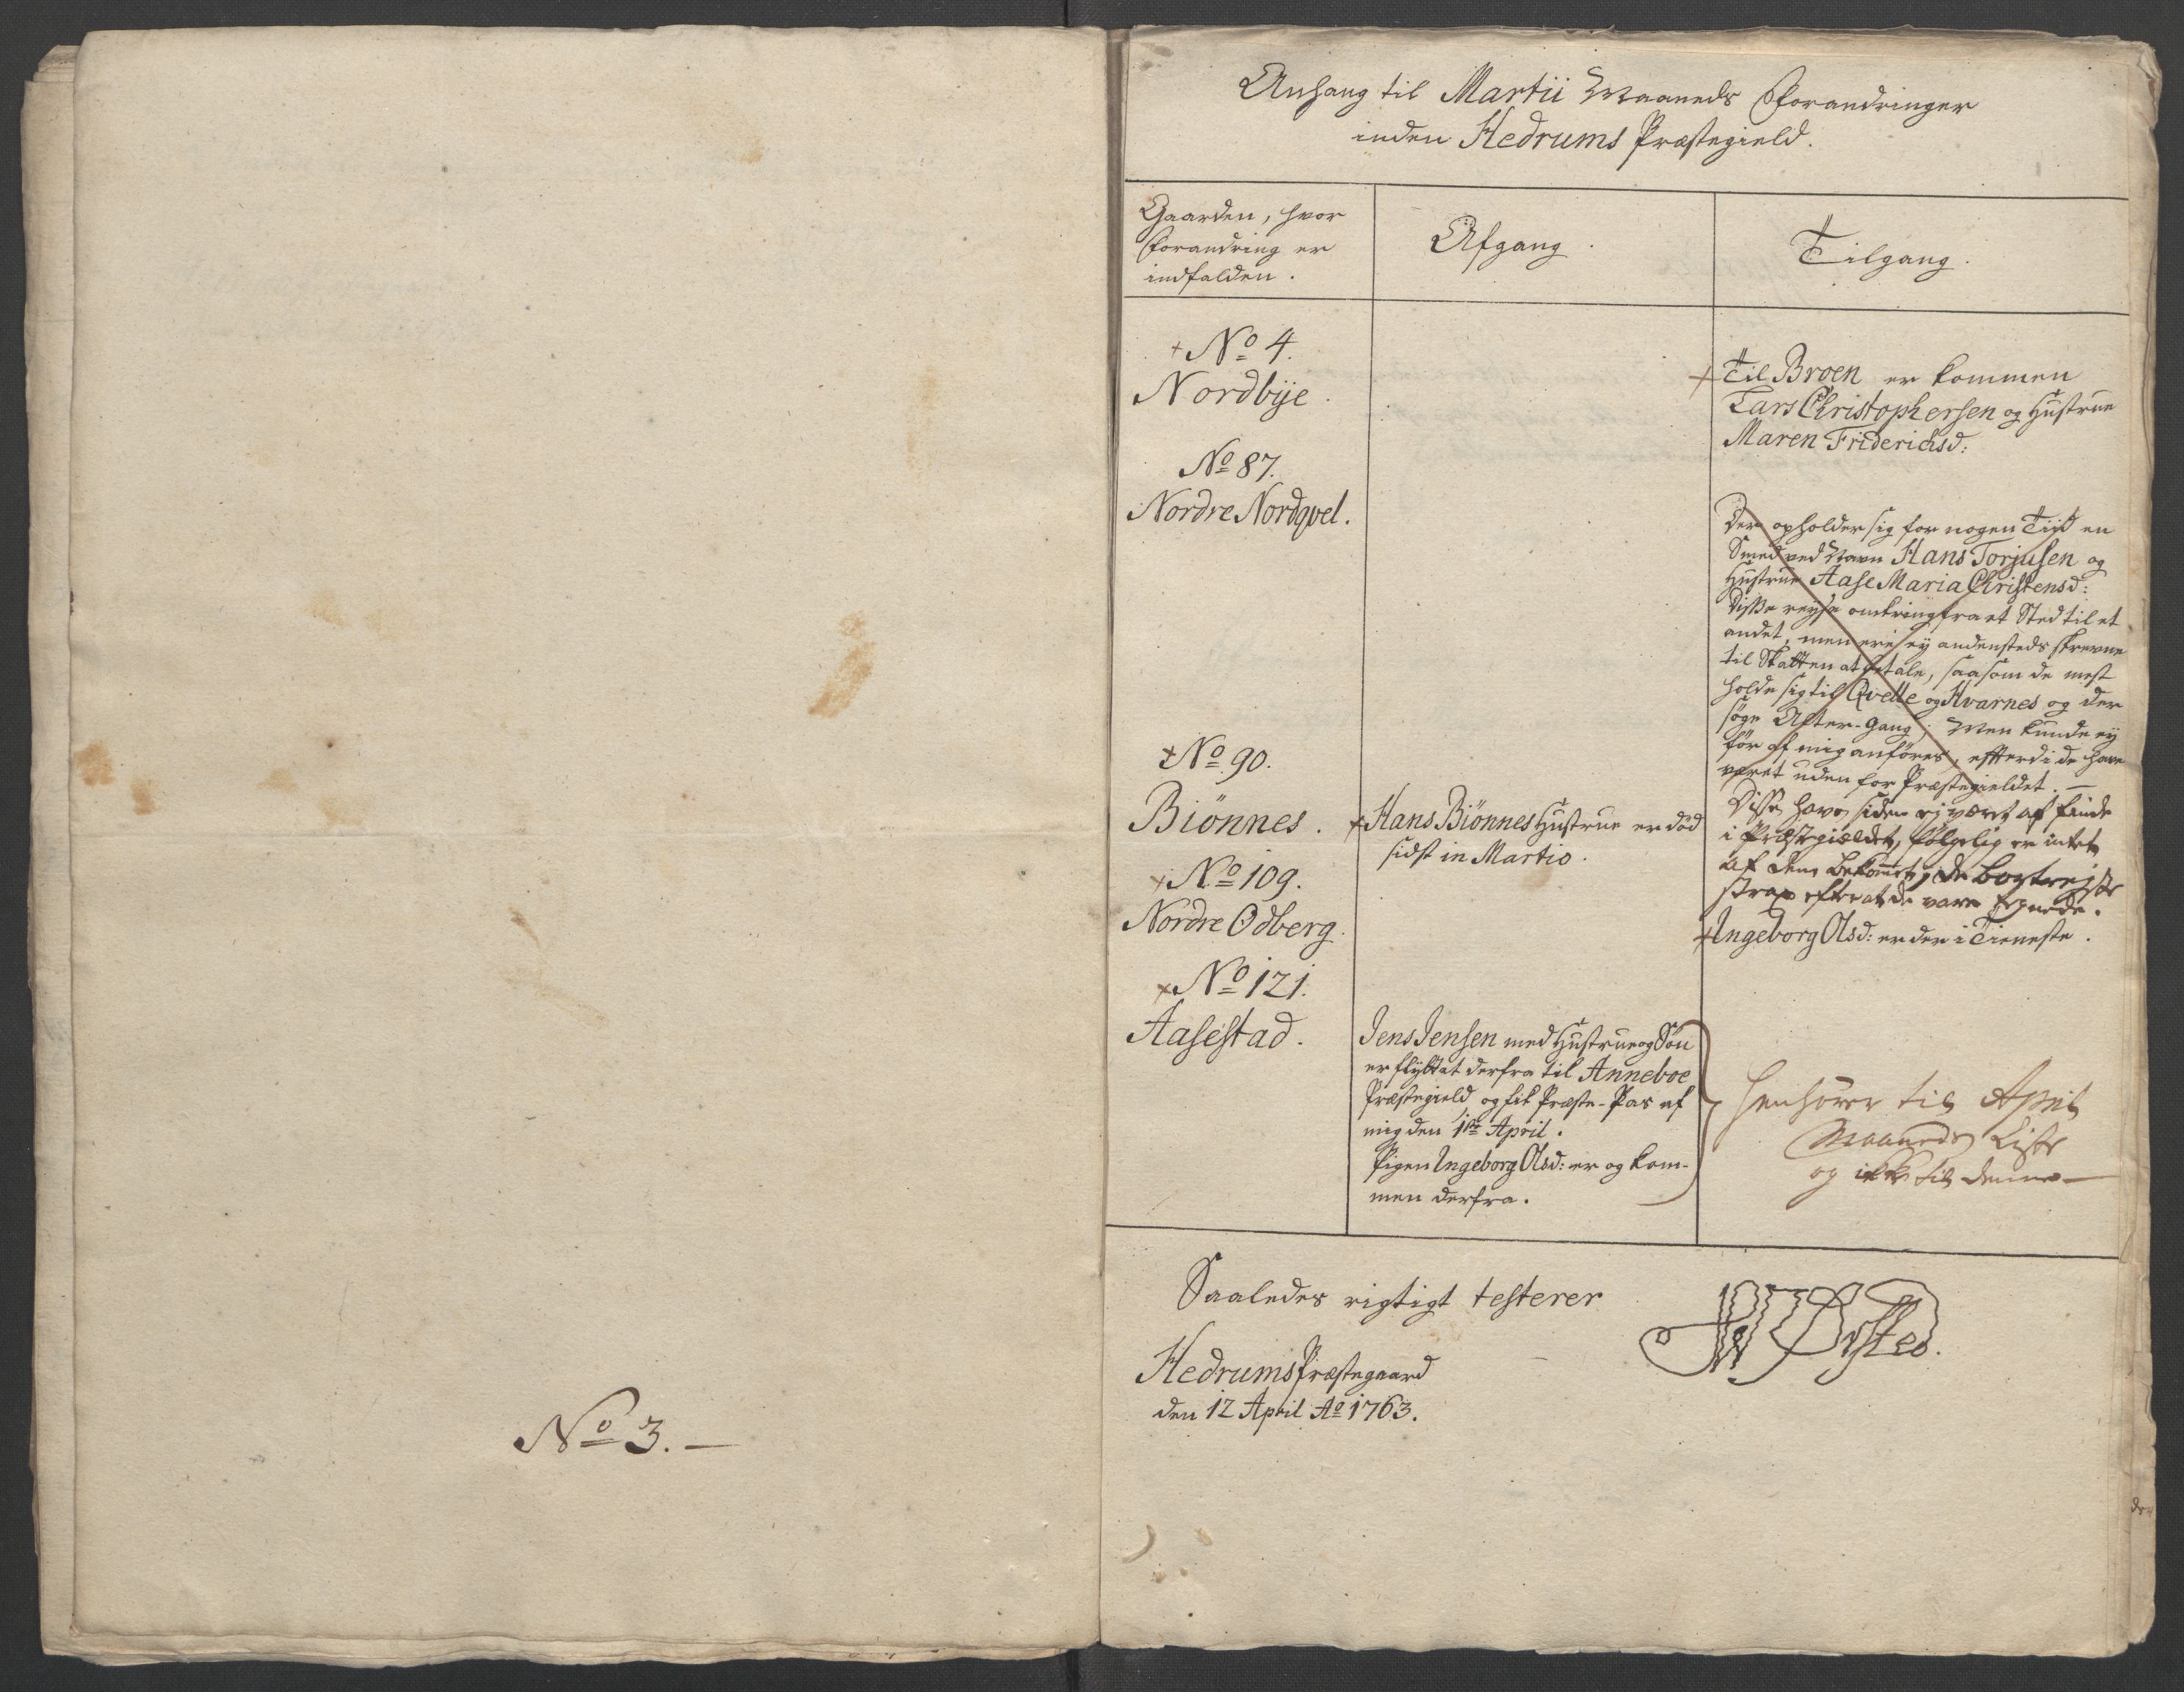 Anhang til Martii Maaneds Forandringer
inden Hedrums Præstegield.
Gaarden, hvor
Forandring er
indfalden.
Afgang.
Tilgang.
+ No 4.
Nordbÿe.
+ Til Broen er kommen
Lars Christophersen og Hustrue
Maren Friderichsd:
No 87.
Nordre Nordqvel.
Der opholder sig for nogen Tiid en
Smed ved Navn Hans Torjusen og
Hustrue Aase Maria Christensd:
Disse reyse omkring fra et Sted til et
andet, men ere ey andensteds skrevne
til Skatten at betale, saasom de mest
holde sig til Qvelle og Hvarnes og der
søge Alter-gang; Men kunde ey
før af mig anføres, efterdi de have
været uden for Præstegieldet. —
Disse have siden ej været at finde
i Præstegieldet, følgelig er intet
af dem bekommet, de bortreiste
strax efter at de vare
+ No 90.
Biönnes.
+ Hans Biönnes Hustrue er död
sidst in Martio.
+ No 109.
Nordre Odberg.
+ Ingeborg Olsd: er der i Tieneste.
+ No 121.
Aasestad.
Jens Jensen med Hustrue og Søn
er flyttet derfra til Anneboe
Præstegield og fik Præste-Pas af
mig den 1ste April.
Pigen Ingeborg Olsd: er og kom-
men derfra.
henhører til April
Maaneds Liste
og ikke til denne —
Saaledes rigtigt testerer
Hedrums Præstegaard
den 12 April Ao 1763.
Ørsted.
No 3. —